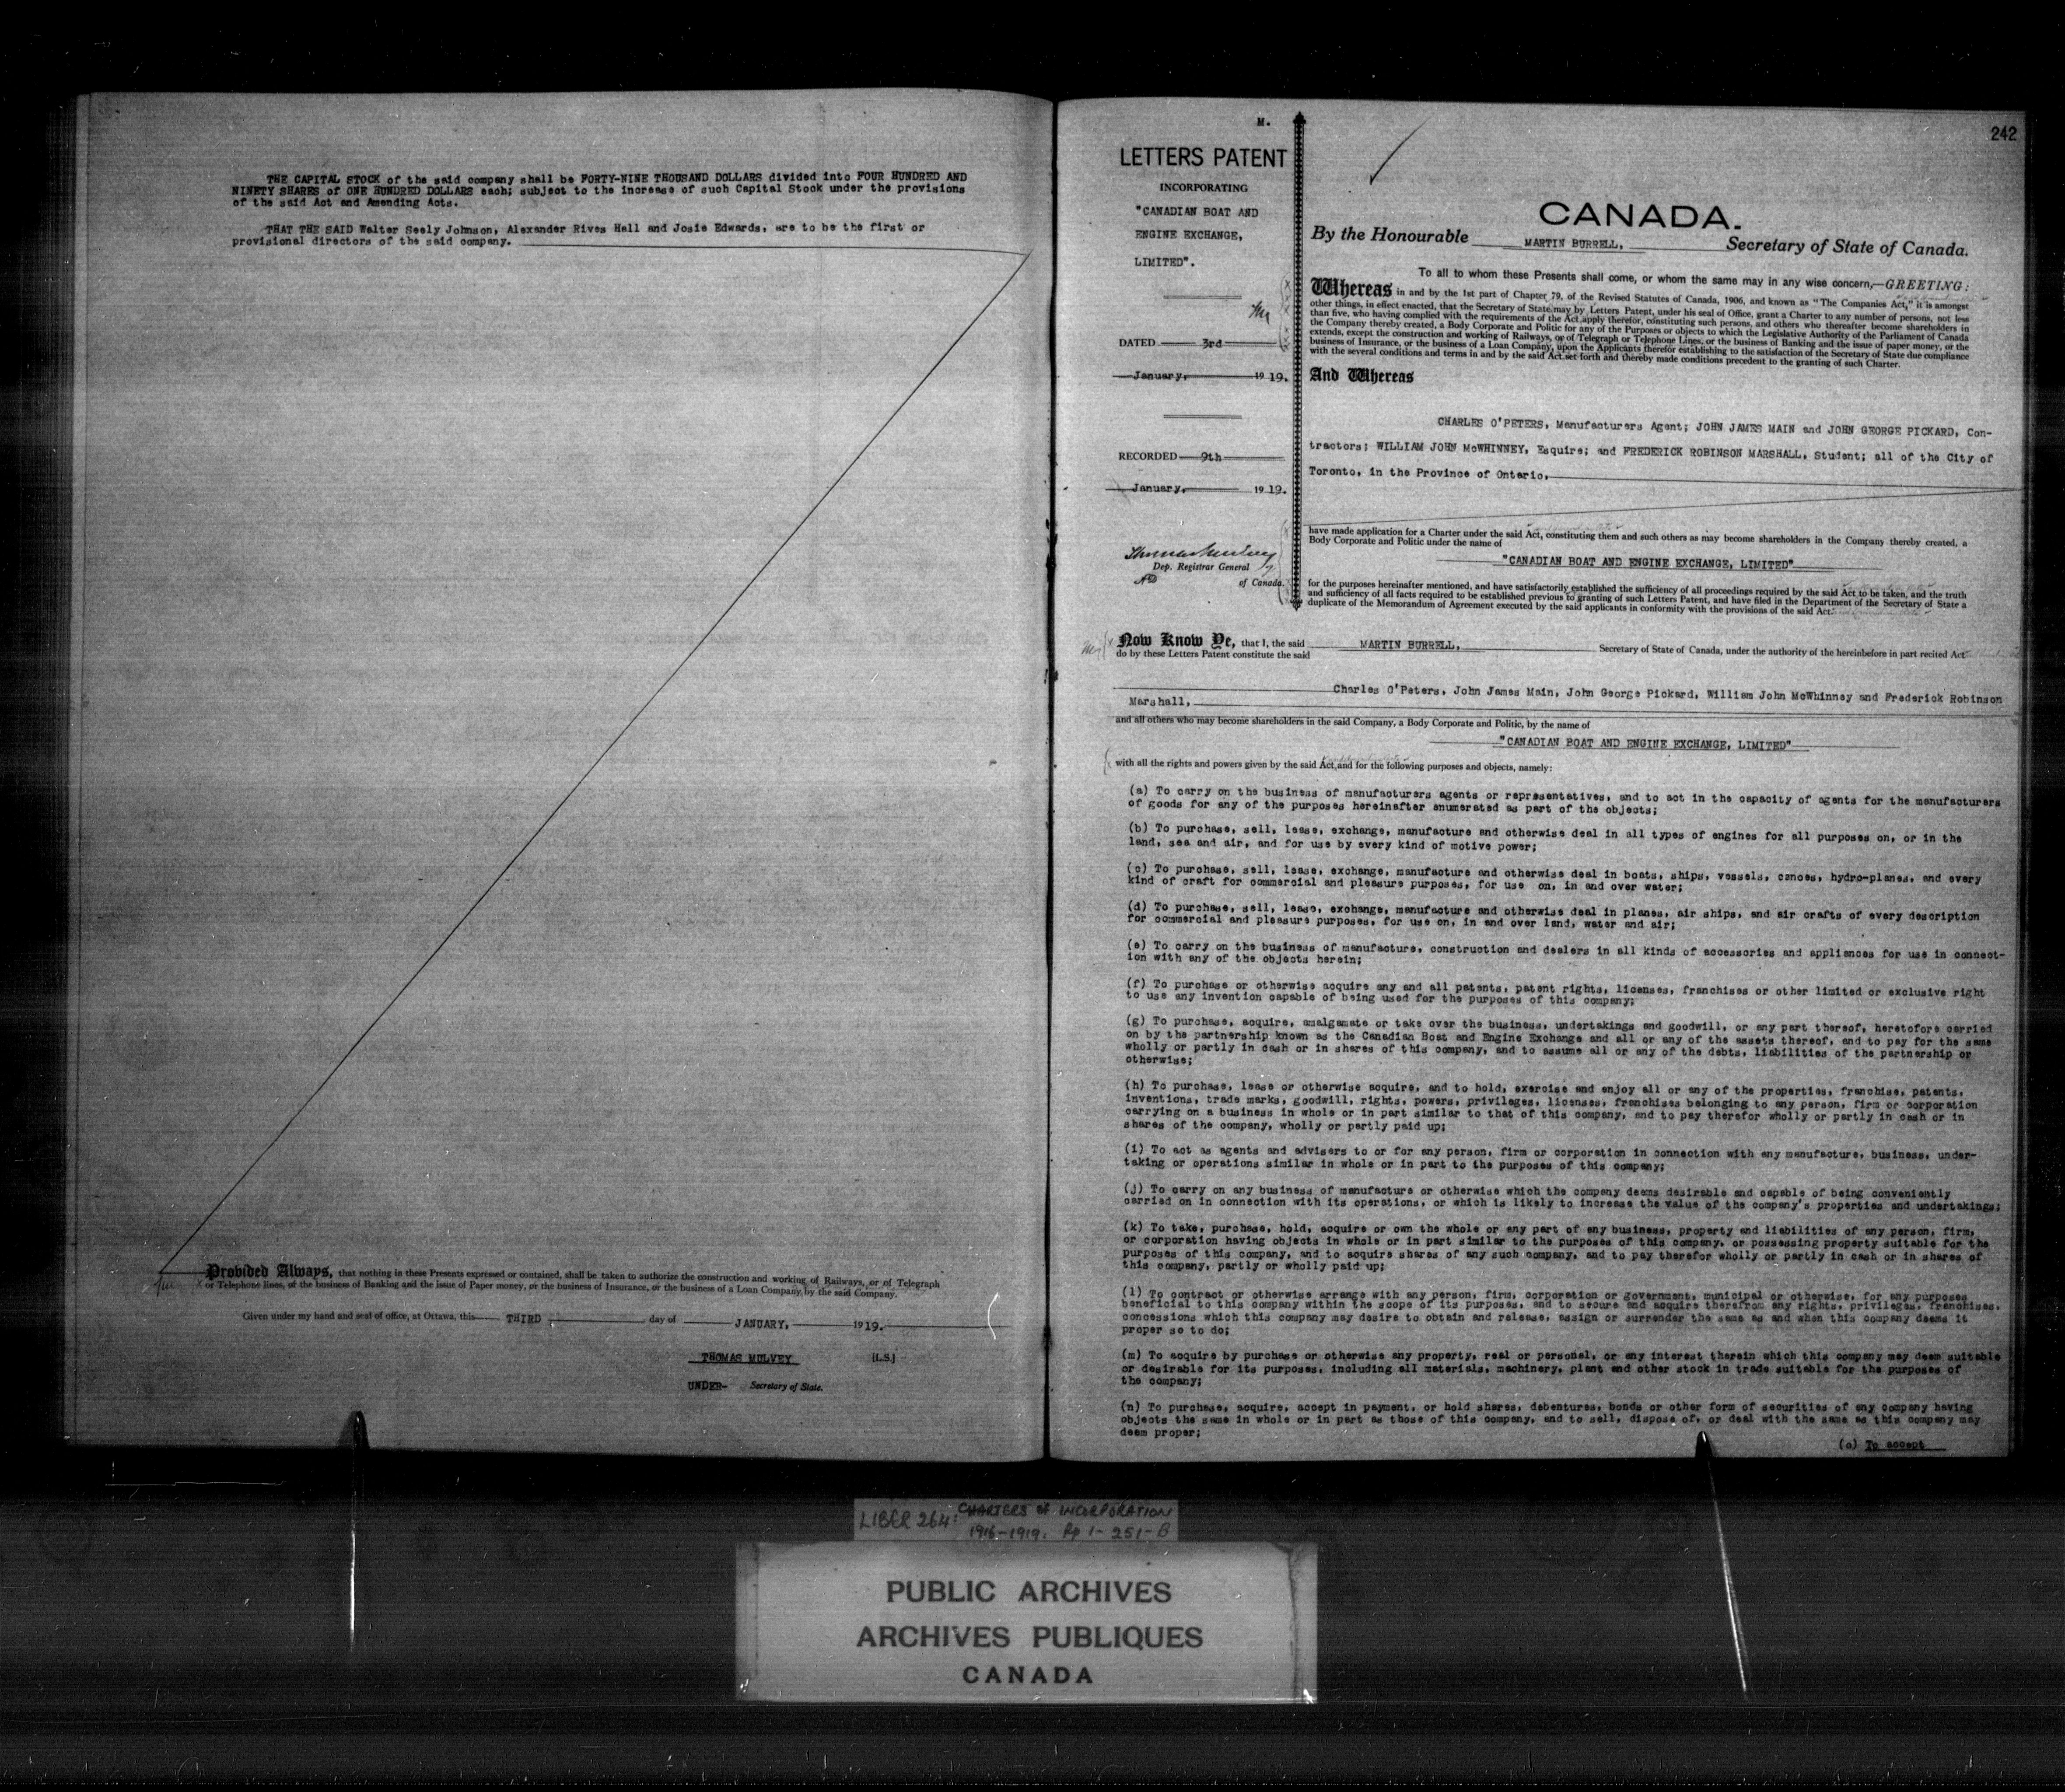 THE CAPITAL STOCK of the said company shall be FORTY-NINE THOUSAND DOLLARS divided into FOUR HUNDRED AND
NINETY SHARES of ONE HUNDRED DOLLARS each; subject to the increase of such Capital Stock under the provisions
of the said Act and Amending Acts.
THAT THE SAID Walter Seely Johnson, Alexander Rives Hall and Josie Edwards, are to be the first or
provisional directors of the said company.
Provided Always, that nothing in these Presents expressed or contained, shall be taken to authorize the construction and working of Railways, or of Telegraph
or Telephone lines, or the business of Banking and the issue of Paper money, or the business of Insurance, or the business of a Loan Company by the said Company.
Given under my hand and seal of office, at Ottawa, this THIRD day of JANUARY, 1919.
THOMAS MULVEY [L.S.]
UNDER- Secretary of State.
242
M.
LETTERS PATENT
INCORPORATING
"CANADIAN BOAT AND
ENGINE EXCHANGE,
LIMITED".
DATED 3rd
January, 1919.
RECORDED 9th
January, 1919.
Thomas Mulvey
Dep. Registrar General
of Canada.
CANADA.
By the Honourable MARTIN BURRELL, Secretary of State of Canada.
To all to whom these Presents shall come, or whom the same may in any wise concern,—GREETING:
Whereas in and by the 1st part of Chapter 79, of the Revised Statutes of Canada, 1906, and known as "The Companies Act," it is amongst
other things, in effect enacted, that the Secretary of State may by Letters Patent, under his seal of Office, grant a Charter to any number of persons, not less
than five, who having complied with the requirements of the Act apply therefor, constituting such persons, and others who thereafter become shareholders in
the Company thereby created, a Body Corporate and Politic for any of the Purposes or objects to which the Legislative Authority of the Parliament of Canada
extends, except the construction and working of Railways, or of Telegraph or Telephone Lines, or the business of Banking and the issue of paper money, or the
business of Insurance, or the business of a Loan Company, upon the Applicants therefor establishing to the satisfaction of the Secretary of State due compliance
with the several conditions and terms in and by the said Act set forth and thereby made conditions precedent to the granting of such Charter.
And Whereas
CHARLES O'PETERS, Manufacturers Agent; JOHN JAMES MAIN and JOHN GEORGE PICKARD, Con-
tractors; WILLIAM JOHN McWHINNEY, Esquire; and FREDERICK ROBINSON MARSHALL, Student; all of the City of
Toronto, in the Province of Ontario,
have made application for a Charter under the said Act, constituting them and such others as may become shareholders in the Company thereby created, a
Body Corporate and Politic under the name of
"CANADIAN BOAT AND ENGINE EXCHANGE, LIMITED"
for the purposes hereinafter mentioned, and have satisfactorily established the sufficiency of all proceedings required by the said Act to be taken, and the truth
and sufficiency of all facts required to be established previous to granting of such Letters Patent, and have filed in the Department of the Secretary of State a
duplicate of the Memorandum of Agreement executed by the said applicants in conformity with the provisions of the said Act.
Now Know Ye, that I, the said MARTIN BURRELL, Secretary of State of Canada, under the authority of the hereinbefore in part recited Act
do by these Letters Patent constitute the said
Charles O'Peters, John James Main, John George Pickard, William John McWhinney and Frederick Robinson
Marshall,
and all others who may become shareholders in the said Company, a Body Corporate and Politic, by the name of
"CANADIAN BOAT AND ENGINE EXCHANGE, LIMITED"
with all the rights and powers given by the said Act, and for the following purposes and objects, namely:
(a) To carry on the business of manufacturers agents or representatives, and to act in the capacity of agents for the manufacturers
of goods for any of the purposes hereinafter enumerated as part of the objects;
(b) To purchase, sell, lease, exchange, manufacture and otherwise deal in all types of engines for all purposes on, or in the
land, sea and air, and for use by every kind of motive power;
(c) To purchase, sell, lease, exchange, manufacture and otherwise deal in boats, ships, vessels, canoes, hydro-planes, and every
kind of craft for commercial and pleasure purposes, for use on, in and over water;
(d) To purchase, sell, lease, exchange, manufacture and otherwise deal in planes, air ships, and air crafts of every description
for commercial and pleasure purposes, for use on, in and over land, water and air;
(e) To carry on the business of manufacture, construction and dealers in all kinds of accessories and appliances for use in connect-
ion with any of the objects herein;
(f) To purchase or otherwise acquire any and all patents, patent rights, licenses, franchises or other limited or exclusive right
to use any invention capable of being used for the purposes of this company;
(g) To purchase, acquire, amalgamate or take over the business, undertakings and goodwill, or any part thereof, heretofore carried
on by the partnership known as the Canadian Boat and Engine Exchange and all or any of the assets thereof, and to pay for the same
wholly or partly in cash or in shares of this company, and to assume all or any of the debts, liabilities of the partnership or
otherwise;
(h) To purchase, lease or otherwise acquire, and to hold, exercise and enjoy all or any of the properties, franchise, patents,
inventions, trade marks, goodwill, rights, powers, privileges, licenses, franchises belonging to any person, firm or corporation
carrying on a business in whole or in part similar to that of this company, and to pay therefor wholly or partly in cash or in
shares of the company, wholly or partly paid up;
(i) To act as agents and advisers to or for any person, firm or corporation in connection with any manufacture, business, under-
taking or operations similar in whole or in part to the purposes of this company;
(j) To carry on any business of manufacture or otherwise which the company deems desirable and capable of being conveniently
carried on in connection with its operations, or which is likely to increase the value of the company's properties and undertakings;
(k) To take, purchase, hold, acquire or own the whole or any part of any business, property and liabilities of any person, firm,
or corporation having objects in whole or in part similar to the purposes of this company, or possessing property suitable for the
purposes of this company, and to acquire shares of any such company, and to pay therefor wholly or partly in cash or in shares of
this company, partly or wholly paid up;
(l) To contract or otherwise arrange with any person, firm, corporation or government, municipal or otherwise, for any purposes
beneficial to this company within the scope of its purposes, and to secure and acquire therefrom any rights, privileges, franchises,
concessions which this company may desire to obtain and release, assign or surrender the same as and when this company deems it
proper so to do;
(m) To acquire by purchase or otherwise any property, real or personal, or any interest therein which this company may deem suitable
or desirable for its purposes, including all materials, machinery, plant and other stock in trade suitable for the purposes of
the company;
(n) To purchase, acquire, accept in payment, or hold shares, debentures, bonds or other form of securities of any company having
objects the same in whole or in part as those of this company, and to sell, dispose of, or deal with the same as this company may
deem proper;
(o) To accept
LIBER 264: CHARTERS of INCORPORATION
1916-1919. Pp 1- 251-B
PUBLIC ARCHIVES
ARCHIVES PUBLIQUES
CANADA